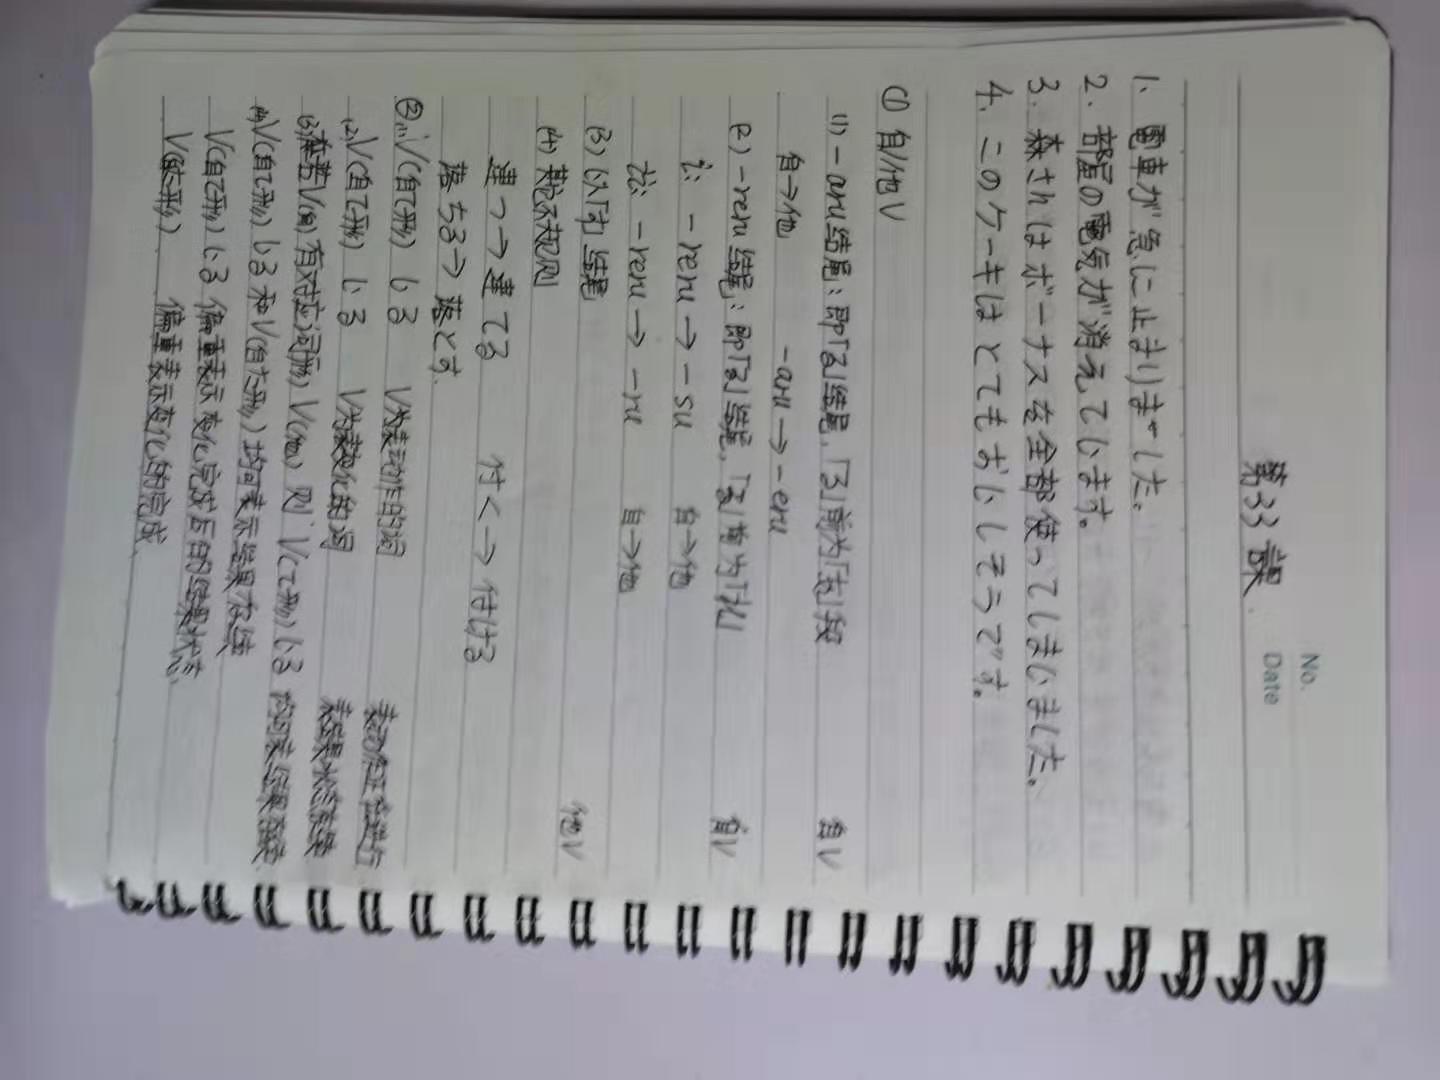 No.
Date
第33課
1. 電車が急に止まりました。
2. 部屋の電気が消えています。
3. 森さんはボーナスを全部使ってしまいました。
4. このケーキはとてもおいしそうです。
① 自/他V
(1) -aru结尾:即「る」结尾,「る」前为「あ」段 自V
自→他 -aru → -eru
(2) -reru结尾:即「る」结尾,「る」前为「れ」 自V
i: -reru → -su 自→他
ii: -reru → -ru 自→他
(3) 以「す」结尾 他V
(4) 其它不规则
建つ→建てる 付く→付ける
落ちる→落とす
② (1) V(自て形) いる V为表动作的词 表动作正在进行
(2) V(自て形) いる V为表变化的词 表结果状态存续
(3) 若V(自)有对应 V(他),则 V(て形) いる 均可表结果存续
(4) V(自て形) いる 和 V(自た形) 均可表示结果存续
V(自て形) いる 偏重表示变化完成后的结果状态
V(自た形) 偏重表示变化的完成